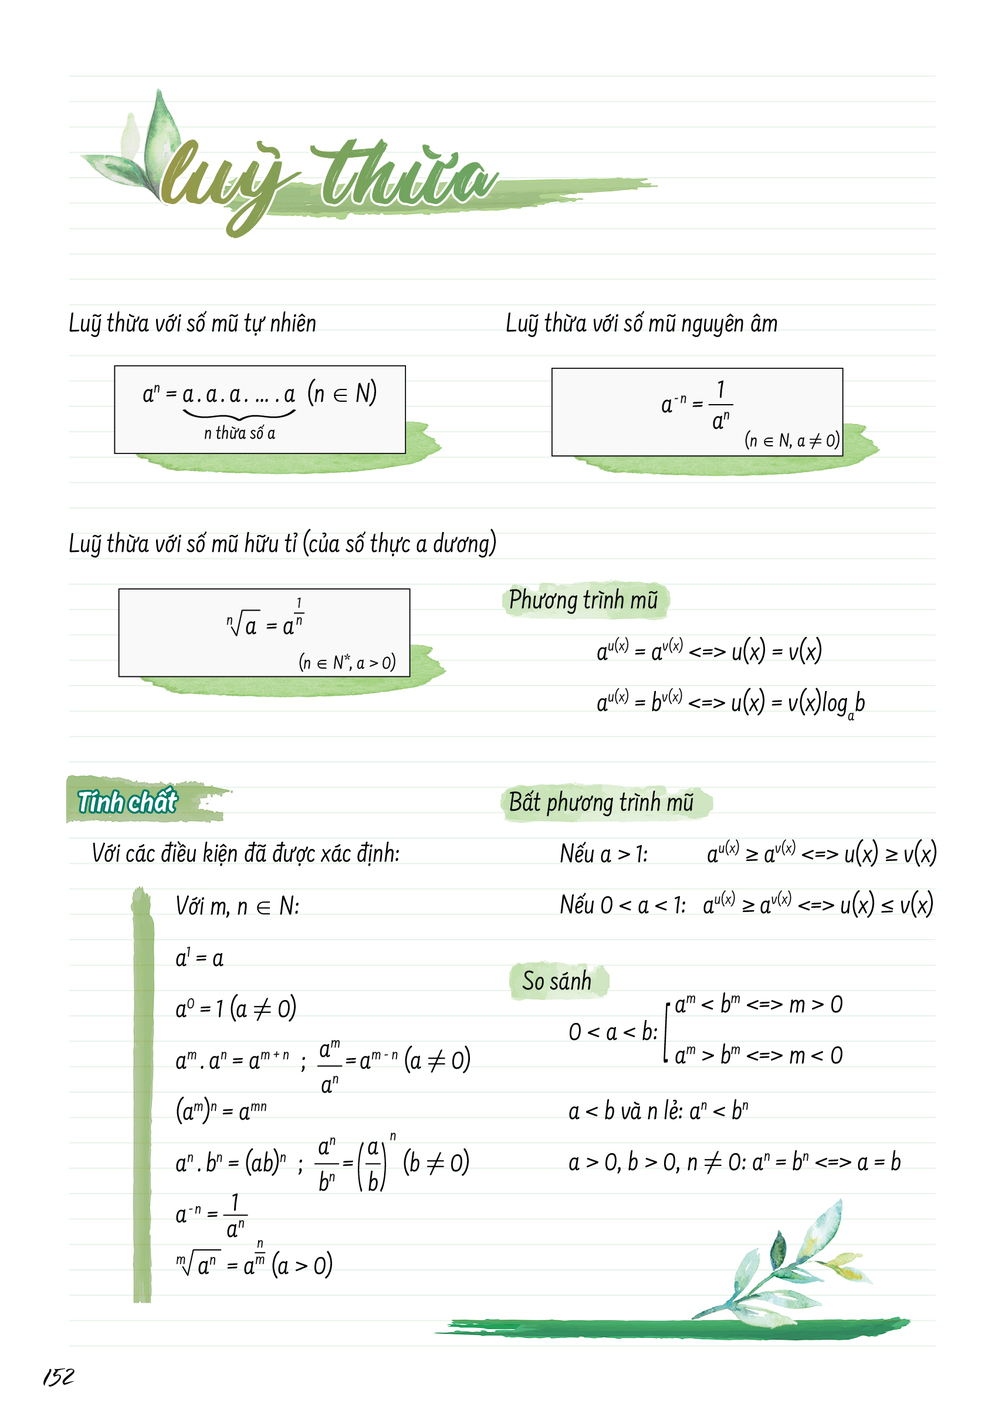 luỹ thừa
Luỹ thừa với số mũ tự nhiên
aⁿ = a . a . a . ... . a (n ∈ N)
n thừa số a
Luỹ thừa với số mũ nguyên âm
a⁻ⁿ = 1/aⁿ
(n ∈ N, a ≠ 0)
Luỹ thừa với số mũ hữu tỉ (của số thực a dương)
ⁿ√a = a^(1/n)
(n ∈ N*, a > 0)
Phương trình mũ
a^u(x) = a^v(x) <=> u(x) = v(x)
a^u(x) = b^v(x) <=> u(x) = v(x)logₐb
Tính chất
Với các điều kiện đã được xác định:
Với m, n ∈ N:
a¹ = a
a⁰ = 1 (a ≠ 0)
aᵐ . aⁿ = aᵐ⁺ⁿ ; aᵐ/aⁿ = aᵐ⁻ⁿ (a ≠ 0)
(aᵐ)ⁿ = aᵐⁿ
aⁿ . bⁿ = (ab)ⁿ ; aⁿ/bⁿ = (a/b)ⁿ (b ≠ 0)
a⁻ⁿ = 1/aⁿ
ᵐ√aⁿ = a^(n/m) (a > 0)
Bất phương trình mũ
Nếu a > 1: a^u(x) ≥ a^v(x) <=> u(x) ≥ v(x)
Nếu 0 < a < 1: a^u(x) ≥ a^v(x) <=> u(x) ≤ v(x)
So sánh
0 < a < b: [ aᵐ < bᵐ <=> m > 0
aᵐ > bᵐ <=> m < 0
a < b và n lẻ: aⁿ < bⁿ
a > 0, b > 0, n ≠ 0: aⁿ = bⁿ <=> a = b
152